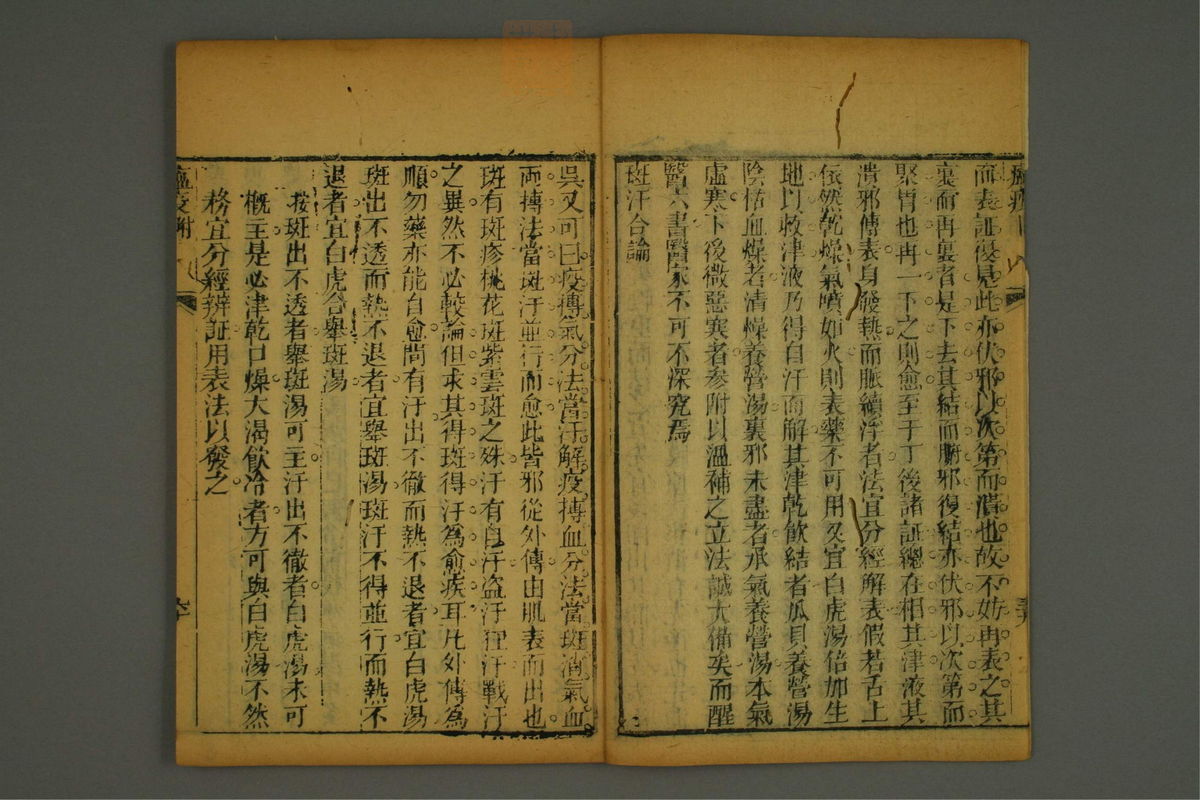 而表証復見此亦伏邪以次第而潰也故不妨再表之其
裏而再裏者是下去其結而腑邪復結亦伏邪以次第而
聚胃也再一下之則愈至于丁後諸証總在相其津液其
潰邪傳表身發熱而脈續浮者法宜分經解表假若舌上
依然乾燥氣噴如火則表藥不可用反宜白虎湯倍加生
地以救津液乃得自汗而解其津乾飲結者瓜貝養營湯
陰枯血燥者清燥養營湯裏邪未盡者承氣養營湯本氣
虛寒下後微惡寒者參附以溫補之立法誠大備矣而醒
醫六書醫家不可不深究焉
斑汗合論
吳又可曰疫搏氣分法當汗解疫搏血分法當斑消氣血
兩搏法當斑汗並行而愈此皆邪從外傳由肌表而出也
斑有斑疹桃花斑紫雲斑之殊汗有自汗盜汗狂汗戰汗
之異然不必較論但求其得斑得汗為愈疾耳凡外傳為
順勿藥亦能自愈間有汗出不徹而熱不退者宜白虎湯
斑出不透而熱不退者宜舉斑湯斑汗不得並行而熱不
退者宜白虎合舉斑湯
按斑出不透者舉斑湯可主汗出不徹者白虎湯未可
概主是必津乾口燥大渴飲冷者方可與白虎湯不然
務宜分經辨証用表法以發之
瘟疫附